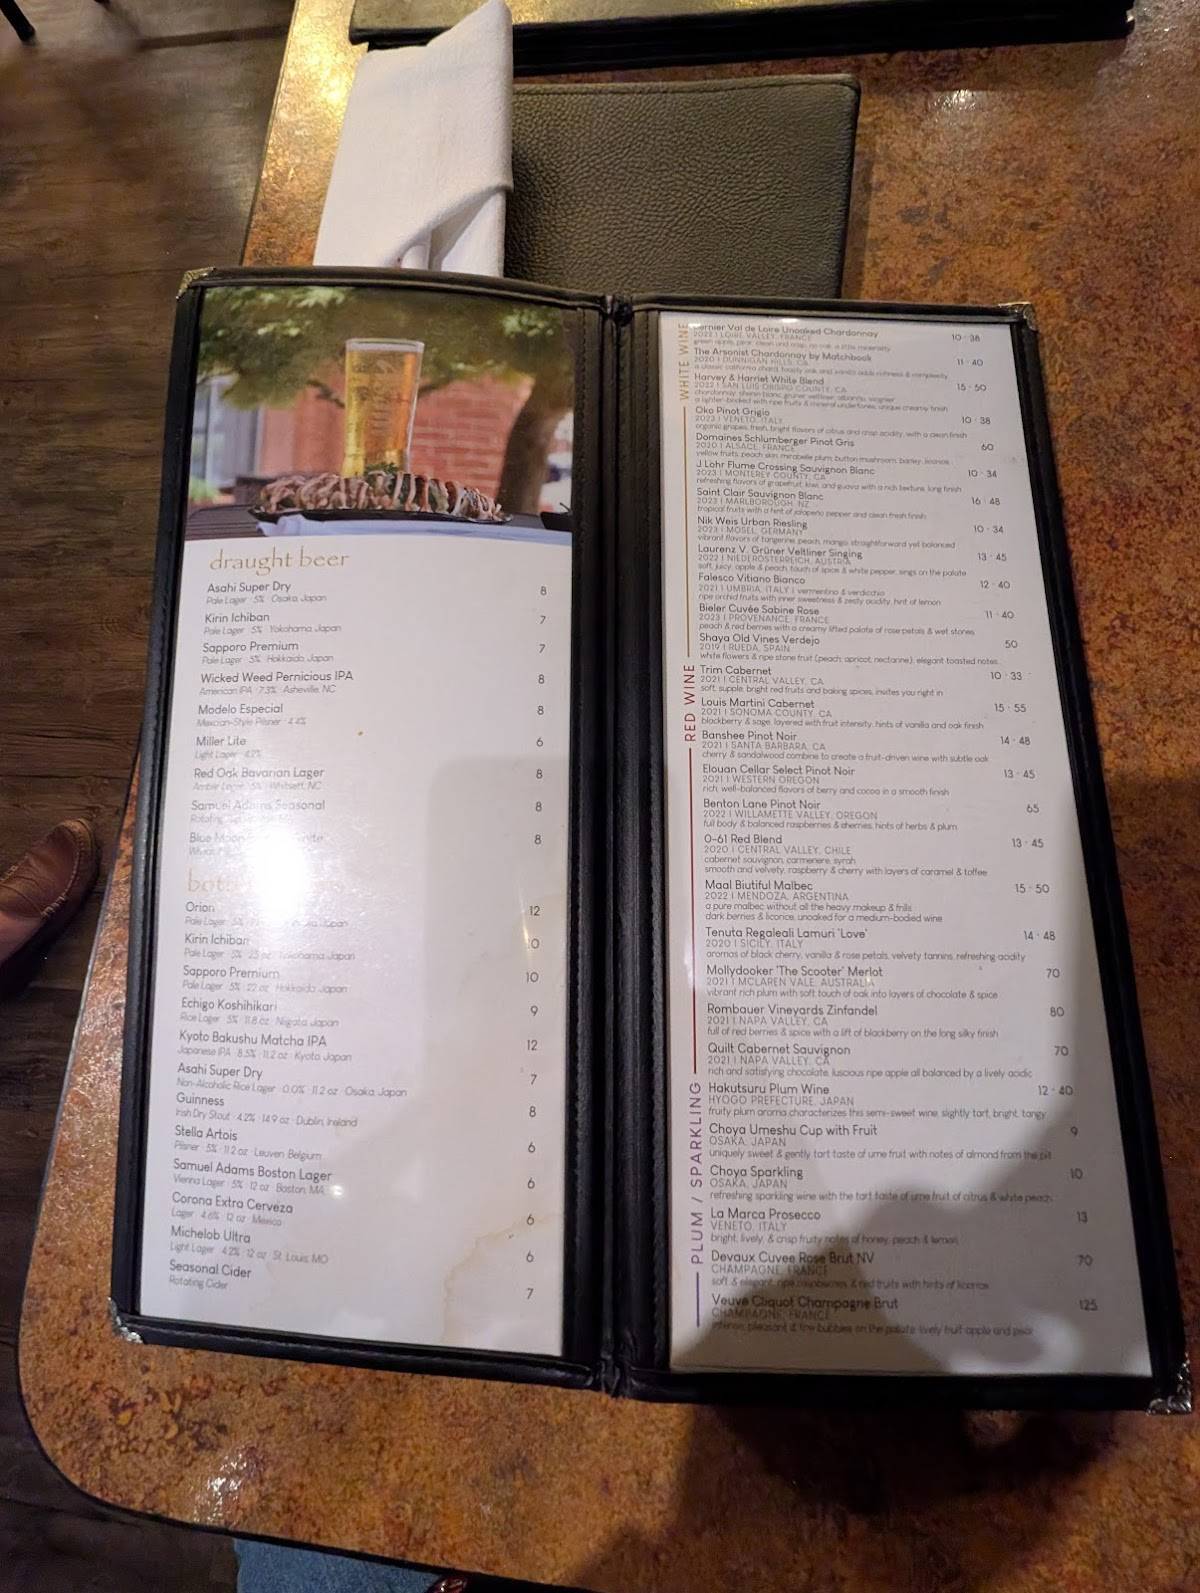 draught beer
Asahi Super Dry 8
Pale Lager · 5% · Osaka, Japan
Kirin Ichiban 7
Pale Lager · 5% · Yokohama, Japan
Sapporo Premium 7
Pale Lager · 5% · Hokkaido, Japan
Wicked Weed Pernicious IPA 8
American IPA · 7.3% · Asheville, NC
Modelo Especial 8
Mexican-Style Pilsner · 4.4%
Miller Lite 6
Light Lager · 4.2%
Red Oak Bavarian Lager 8
Amber Lager · 5% · Whitsett, NC
Samuel Adams Seasonal 8
Rotating
Blue Moon 8
Orion 12
Pale Lager · 5%
Kirin Ichiban 10
Pale Lager · 5% · 25 oz · Yokohama, Japan
Sapporo Premium 10
Pale Lager · 5% · 22 oz · Hokkaido, Japan
Echigo Koshihikari 9
Rice Lager · 5% · 11.8 oz · Niigata, Japan
Kyoto Bakushu Matcha IPA 12
Japanese IPA · 8.5% · 11.2 oz · Kyoto, Japan
Asahi Super Dry 7
Non-Alcoholic Rice Lager · 0.0% · 11.2 oz · Osaka, Japan
Guinness 8
Irish Dry Stout · 4.2% · 14.9 oz · Dublin, Ireland
Stella Artois 6
Pilsner · 5% · 11.2 oz · Leuven, Belgium
Samuel Adams Boston Lager 6
Vienna Lager · 5% · 12 oz · Boston, MA
Corona Extra Cerveza 6
Lager · 4.6% · 12 oz · Mexico
Michelob Ultra 6
Light Lager · 4.2% · 12 oz · St. Louis, MO
Seasonal Cider 7
Rotating Cider
WHITE WINE
Bernier Val de Loire Unoaked Chardonnay 10 · 38
2022 | LOIRE VALLEY, FRANCE
green apple, pear, clean and crisp, no oak, a little minerality
The Arsonist Chardonnay by Matchbook 11 · 40
2020 | DUNNIGAN HILLS, CA
a classic california chard, toasty oak and vanilla adds richness & complexity
Harvey & Harriet White Blend 15 · 50
2022 | SAN LUIS OBISPO COUNTY, CA
chardonnay, chenin blanc, gruner veltliner, albarino, viognier
a lighter-bodied with ripe fruits & mineral undertones, unique creamy finish
Oko Pinot Grigio 10 · 38
2023 | VENETO, ITALY
organic grapes, fresh, bright flavors of citrus and crisp acidity, with a clean finish
Domaines Schlumberger Pinot Gris 60
2020 | ALSACE, FRANCE
yellow fruits, peach skin, mirabelle plum, button mushroom, barley, licorice
J Lohr Flume Crossing Sauvignon Blanc 10 · 34
2023 | MONTEREY COUNTY, CA
refreshing flavors of grapefruit, kiwi, and guava with a rich texture, long finish
Saint Clair Sauvignon Blanc 16 · 48
2023 | MARLBOROUGH, NZ
tropical fruits with a hint of jalapeño pepper and clean fresh finish
Nik Weis Urban Riesling 10 · 34
2023 | MOSEL, GERMANY
vibrant flavors of tangerine, peach, mango, straightforward yet balanced
Laurenz V. Grüner Veltliner Singing 13 · 45
2022 | NIEDERÖSTERREICH, AUSTRIA
soft, juicy, apple & peach, touch of spice & white pepper, sings on the palate
Falesco Vitiano Bianco 12 · 40
2021 | UMBRIA, ITALY | vermentino & verdicchio
ripe orchid fruits with inner sweetness & zesty acidity, hint of lemon
Bieler Cuvée Sabine Rose 11 · 40
2023 | PROVENANCE, FRANCE
peach & red berries with a creamy lifted palate of rose petals & wet stones
Shaya Old Vines Verdejo 50
2019 | RUEDA, SPAIN
white flowers & ripe stone fruit (peach, apricot, nectarine), elegant toasted notes
RED WINE
Trim Cabernet 10 · 33
2021 | CENTRAL VALLEY, CA
soft, supple, bright red fruits and baking spices, invites you right in
Louis Martini Cabernet 15 · 55
2021 | SONOMA COUNTY, CA
blackberry & sage, layered with fruit intensity, hints of vanilla and oak finish
Banshee Pinot Noir 14 · 48
2021 | SANTA BARBARA, CA
cherry & sandalwood combine to create a fruit-driven wine with subtle oak
Elouan Cellar Select Pinot Noir 13 · 45
2021 | WESTERN OREGON
rich, well-balanced flavors of berry and cocoa in a smooth finish
Benton Lane Pinot Noir 65
2022 | WILLAMETTE VALLEY, OREGON
full body & balanced raspberries & cherries, hints of herbs & plum
O-61 Red Blend 13 · 45
2020 | CENTRAL VALLEY, CHILE
cabernet sauvignon, carmenere, syrah
smooth and velvety, raspberry & cherry with layers of caramel & toffee
Maal Biutiful Malbec 15 · 50
2022 | MENDOZA, ARGENTINA
a pure malbec without all the heavy makeup & frills
dark berries & licorice, unoaked for a medium-bodied wine
Tenuta Regaleali Lamuri 'Love' 14 · 48
2020 | SICILY, ITALY
aromas of black cherry, vanilla & rose petals, velvety tannins, refreshing acidity
Mollydooker 'The Scooter' Merlot 70
2021 | MCLAREN VALE, AUSTRALIA
vibrant rich plum with soft touch of oak into layers of chocolate & spice
Rombauer Vineyards Zinfandel 80
2021 | NAPA VALLEY, CA
full of red berries & spice with a lift of blackberry on the long silky finish
Quilt Cabernet Sauvignon 70
2021 | NAPA VALLEY, CA
rich and satisfying chocolate, luscious ripe apple all balanced by a lively acidic
PLUM / SPARKLING
Hakutsuru Plum Wine 12 · 40
HYOGO PREFECTURE, JAPAN
fruity plum aroma characterizes this semi-sweet wine, slightly tart, bright, tangy
Choya Umeshu Cup with Fruit 9
OSAKA, JAPAN
uniquely sweet & gently tart taste of ume fruit with notes of almond from the pit
Choya Sparkling 10
OSAKA, JAPAN
refreshing sparkling wine with the tart taste of ume fruit of citrus & white peach
La Marca Prosecco 13
VENETO, ITALY
bright, lively, & crisp fruity notes of honey, peach & lemon
Devaux Cuvee Rose Brut NV 70
CHAMPAGNE, FRANCE
soft & elegant, ripe raspberries & red fruits with hints of licorice
Veuve Cliquot Champagne Brut 125
CHAMPAGNE, FRANCE
intense, pleasant & fine bubbles on the palate lively fruit apple and pear